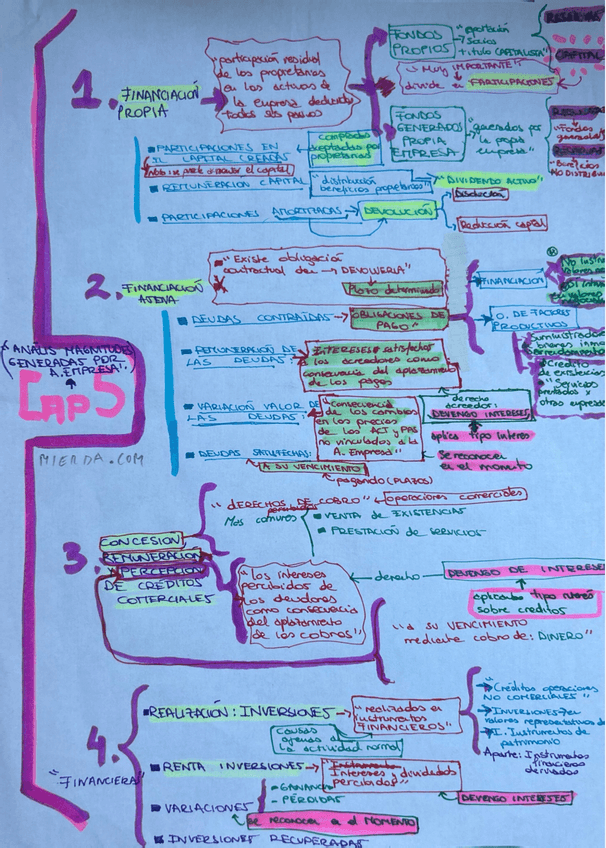 "ANÁLIS MAGNITUDES
GENERADAS POR
A. EMPRESA".
CAP 5
MIERDA.COM
1. FINANCIACIÓN
PROPIA
"participación residual
de los propietarios
en los activos de
la empresa deducidos
todos sus pasivos
FONDOS
PROPIOS
"aportación
socios
título CAPITALISTA"
"MUY IMPORTANTE"
divide en PARTICIPACIONES
FONDOS
GENERADOS
PROPIA
EMPRESA.
"generados por
la propia
empresa"
CAPITAL
"Fondos
"Beneficios
NO DISTRIBUI
PARTICIPACIONES EN
EL CAPITAL CREADAS
compradas
aceptadas por
propietarios
REMUNERACION CAPITAL
"distribución
beneficios propietarios"
"DIVIDENDO ACTIVO"
PARTICIPACIONES AMORTIZADAS
DEVOLUCIÓN
Disolución
Reducción capital
2. FINANCIACION
AJENA
"Existe obligación
contractual de → DEVOLVERLA"
Plazo determinado
DEUDAS CONTRAÍDAS
OBLIGACIONES DE
PAGO"
FINANCIACIÓN
O. DE FACTORES
PRODUCTIVOS
Suministrados
"Servicios
prestados x
otras empresas
REMUNERACIÓN DE
LAS DEUDAS:
INTERESES satisfechos
a los acreedores como
consecuencia del aplazamiento
de los pagos
VARIACIÓN VALOR DE
LAS DEUDAS:
"consecuencia
de los cambios
en los precios
de los ACT y PAS
no vinculados a la
A. Empresa"
derecho
acreedor:
DEVENGO INTERESES
aplica tipo interes
Se reconocer
en el momento
DEUDAS SATISFECHAS:
A SU VENCIMIENTO
pagando (PLAZOS)
3. CONCESION
REMUNERACION
Y PERCEPCION
DE CRÉDITOS
COMERCIALES
"DERECHOS DE COBRO"
operaciones comerciales
Mas comunes
VENTA DE EXISTENCIAS
PRESTACIÓN DE SERVICIOS
"los intereses
percibidos de
los deudores
como consecuencia
del aplazamiento
de los cobros"
derecho
DEVENGO DE INTERESE
aplicando tipo interés
sobre creditos
"a SU VENCIMIENTO
mediante cobro de: DINERO"
4.
"FINANCIERA"
REALIZACIÓN: INVERSIONES
"realizados en
instrumentos
FINANCIEROS"
causas
ajenas a
la actividad normal
Créditos operaciones
NO COMERCIALES"
INVERSIONES en
valores representativos de
I. Instrumentos de
patrimonio
Aparte: Instrumentos
financieros
derivados
RENTA INVERSIONES
Intereses y dividendos
percibidos"
DEVENGO INTERESES
VARIACIONES
GANANCIA
PÉRDIDAS
se reconocer en el MOMENTO
INVERSIONES RECUPERADAS